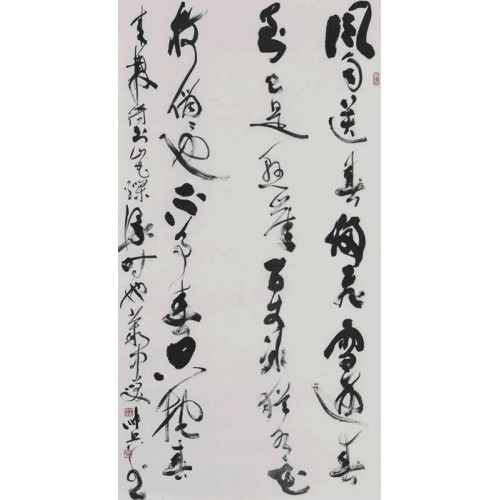 风雨送春归飞雪迎春
到已是悬崖百丈冰犹有花
枝俏俏也不争春只把春
来报待到山花烂漫时她丛中笑